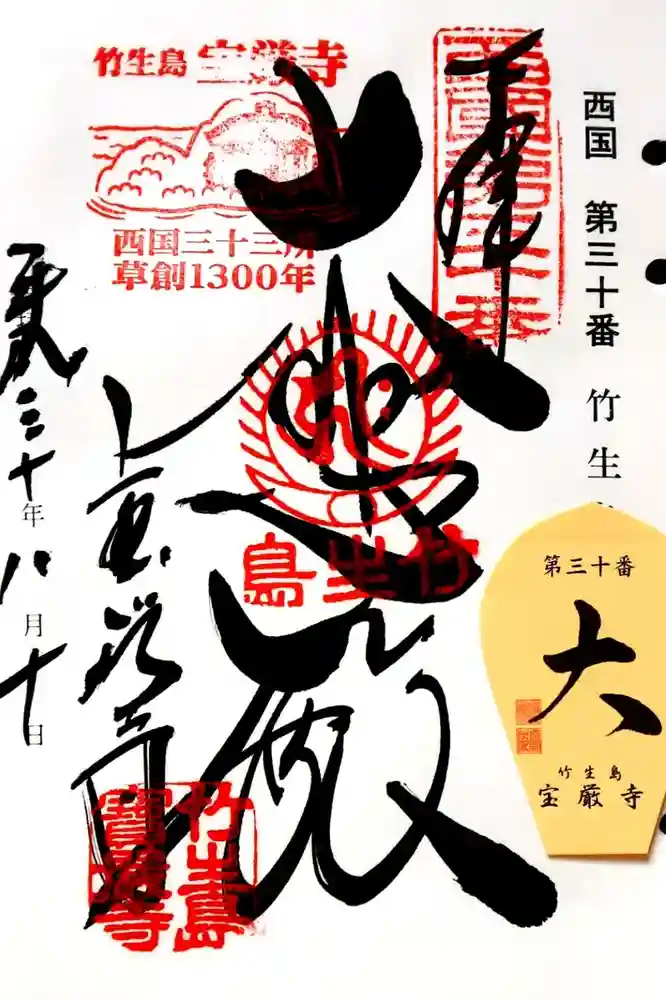 西国 第三十番 竹生
奉拝
西國第三十番
大悲殿
竹生島 宝厳寺
西国三十三所
草創1300年
竹生島
宝厳寺
竹生島
寶嚴寺
平成三十年八月十日
第三十番
大
竹生島
宝厳寺